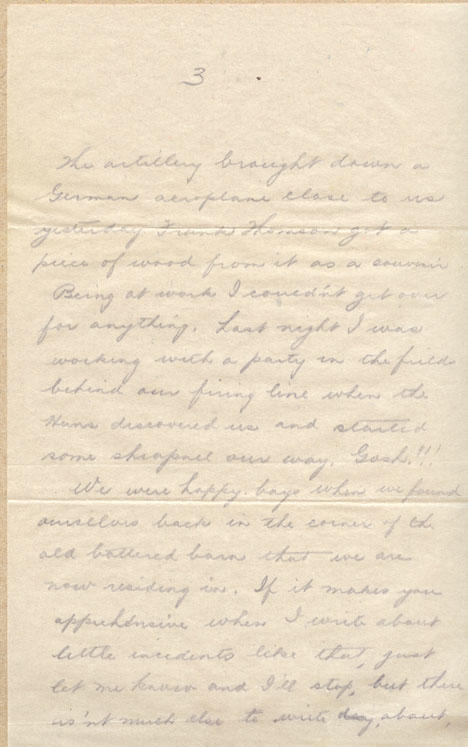 3
The artillery brought down a
German aeroplane close to us
yesterday Frank Thomson got a
piece of wood from it as a souvenir
Being at work I couldn't get over
for anything. Last night I was
working with a party in the field
behind our firing line when the
Huns discovered us and started
some shrapnel our way. Gosh.!!!
We were happy boys when we found
ourselves back in the corner of the
old battered barn that we are
now residing in. If it makes you
apprehensive when I write about
little incidents like that, just
let me know and I'll stop, but there
is'nt much else to write about,